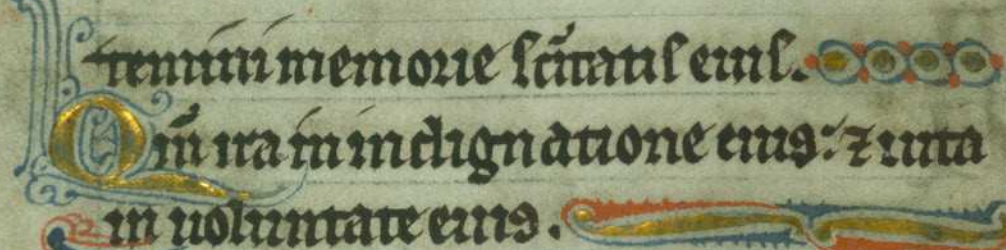 temini memorie sc̄itatis eius.
Qm̄ ira in indignatione eiꝰ: ⁊ uita
in uoluntate eiꝰ.